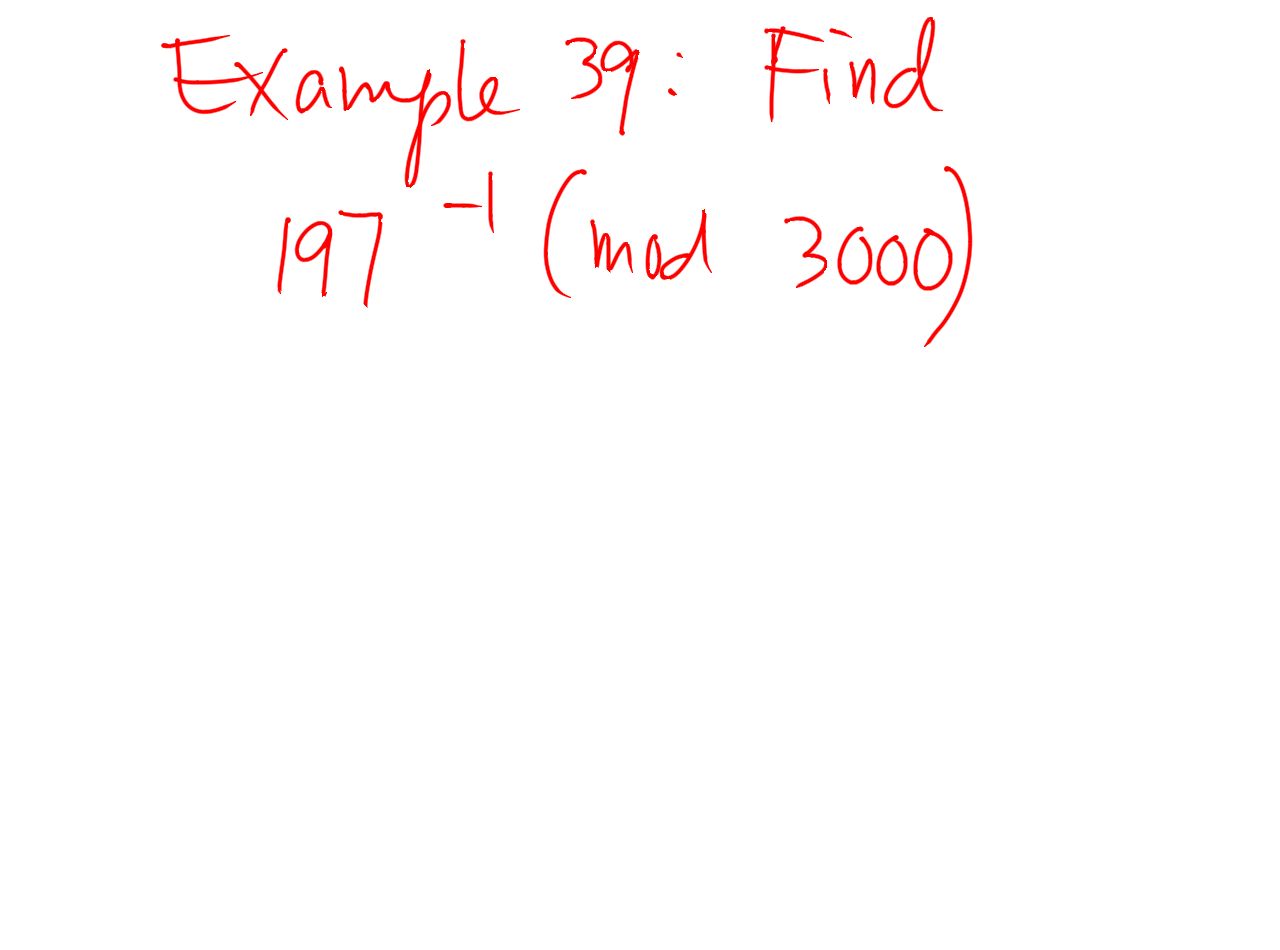 Example 39: Find
197^{-1} (mod 3000)